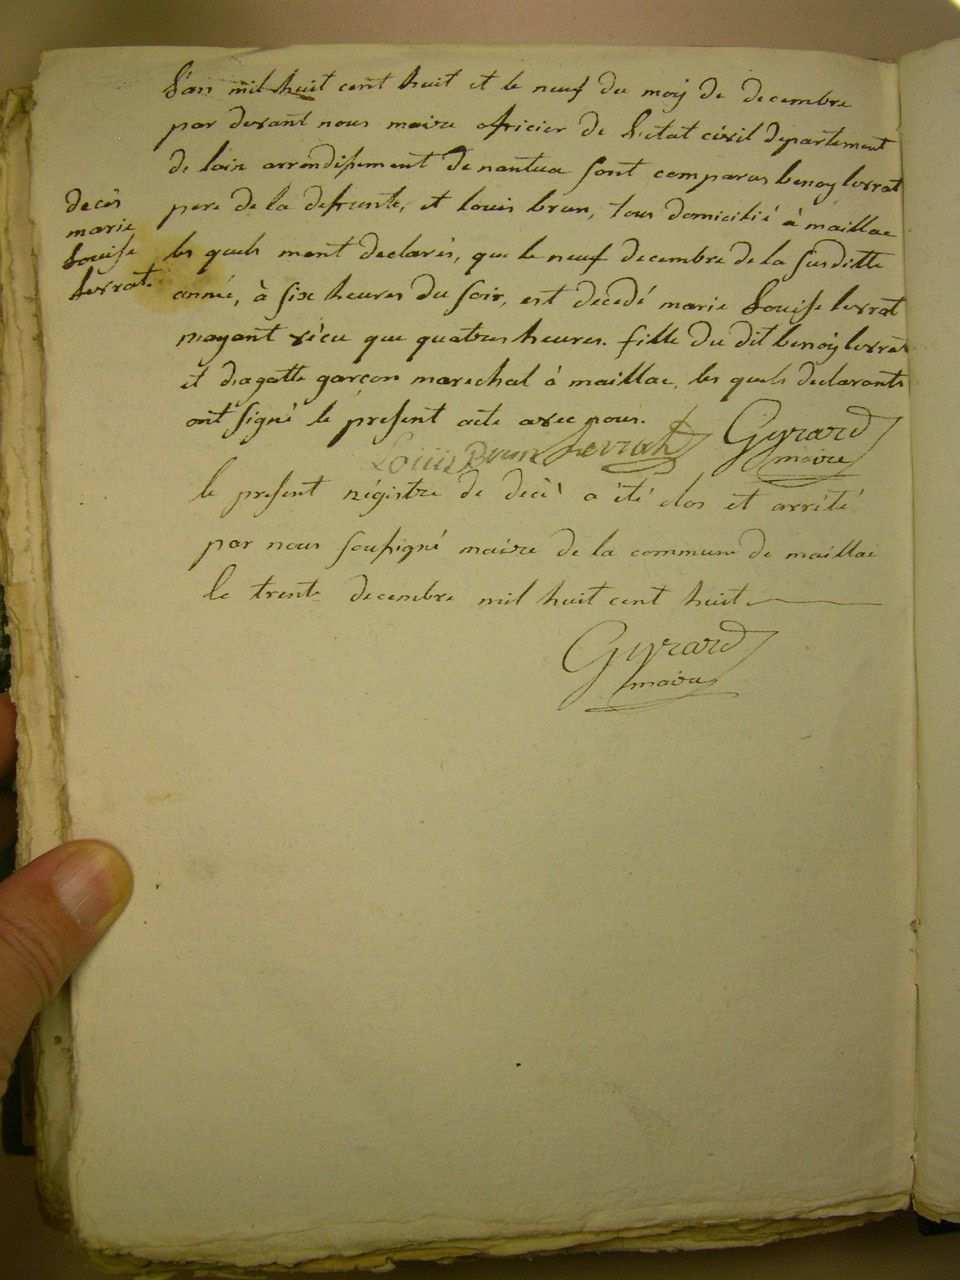 L'an mil huit cent huit et le neuf du moy de decembre
par devant nous maire oficier de L'etat civil departement
de lain arrondissement de nantua sont comparus benoy levrat
decès
marie
Louise
levrat
pere de la defunte, et louis brun, tous domicilié à maillac
les quels mont declarés, que le neuf decembre de la susditte
année, à six heures du soir, est decedé marie Louise levrat
nayant vécu que quatres heures. fille du dit benoy levrat
et dagatte garçon marechal à maillac, les quels declarants
ont signé le present acte avec nous.
Louis Brun Levrat Gyrard
maire
le present régistre de decè a été clos et arrêté
par nous soussigné maire de la commune de maillac
le trente decembre mil huit cent huit
Gyrard
maire